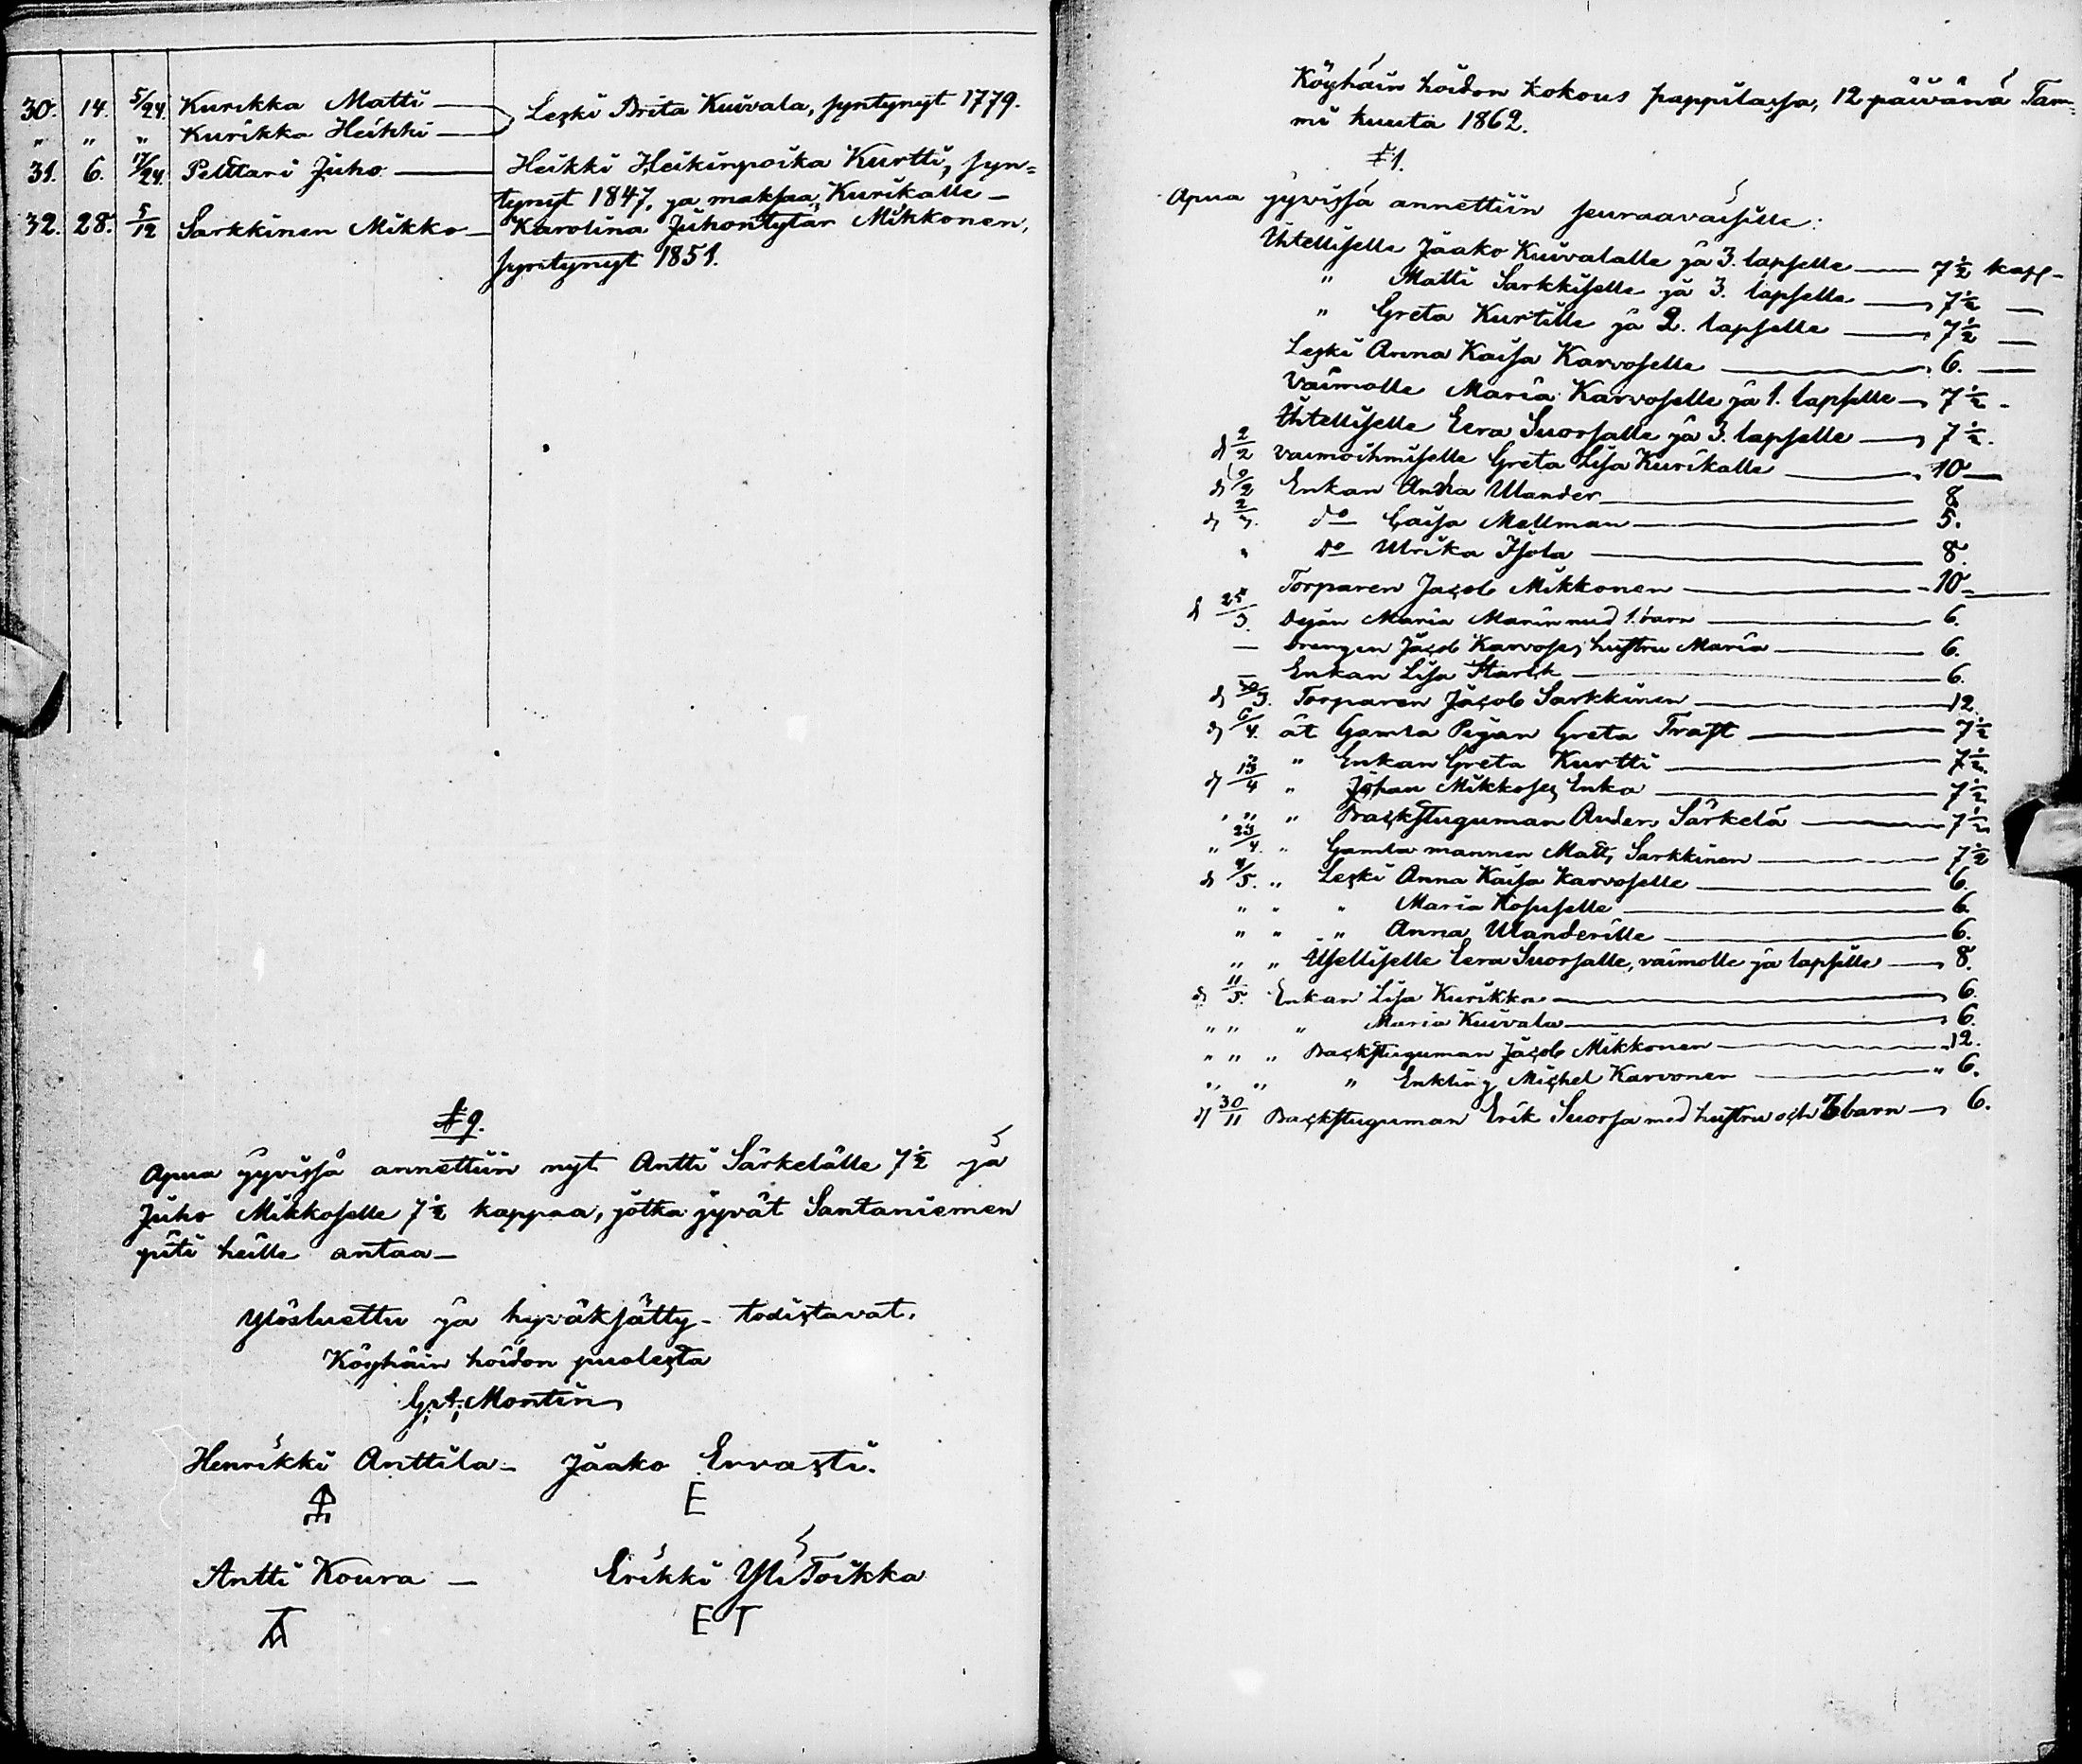 30. 14. 5/24. Kurikka Matti — Leski Brita Kuivala, syntynyt 1779.
" " " Kurikka Heikki —
31. 6. 17/24. Pelttari Juho — Heikki Heikinpoika Kurtti, syn=
tynyt 1847, ja maksaa Kurikalle —
32. 28. 5/12 Sarkkinen Mikko — Karolina Juhontytär Mikkonen,
syntynyt 1851.
§ 9.
Apua jyvissä annettiin nyt Antti Särkelälle 7 1/2 ja
Juho Mikkoselle 7 1/2 kappaa, jotka jyvät Santaniemen
piti heille antaa —
Ylösluettu ja hyväksätty - todistavat.
Köyhäin hoidon puolesta
G. A. Montin
Henrikki Anttila — Jaako Ervasti.
E
Antti Koura — Erikki YliToikka
E T
Köyhäin hoidon kokous pappilassa, 12 päivänä Tam=
mi kuuta 1862.
§ 1.
Apua jyvissä annettiin seuraavaisille:
Ittelliselle Jaako Kuivalalle ja 3. lapselle — 7 1/2 kapp-
" Matti Sarkkiselle ja 3. lapselle — 7 1/2 —
" Greta Kurtille ja 2. lapselle — 7 1/2 —
Leski Anna Kaisa Karvoselle — 6. —
Vaimolle Maria Karvoselle ja 1. lapselle — 7 1/2 -
Ittelliselle Eera Suorsalle ja 3. lapselle — 7 1/2.
d 2/2 vaimoihmiselle Greta Lisa Kurikalle — 10 —
Enkan Anna Ulander — 8
do Caisa Mellman — 5.
" do Ulrika Isola — 8.
Torparen Jacob Mikkonen — 10 —
d 25/3. Pijan Maria Marin med 1. barn — 6.
— Drengen Jacob Karvoses hustru Maria — 6.
— Enkan Lisa Starck — 6.
Torparen Jacob Sarkkinen — 12.
d 6/4. åt Gamla Pigan Greta Traft — 7 1/2
" Enkan Greta Kurtti — 7 1/2.
d 13/4 " Johan Mikkoses Enka — 7 1/2
" " " Backstuguman Anders Särkelä — 7 1/2
" 23/4. " Gamla mannen Matts Sarkkinen — 7 1/2
d 4/5. " Leski Anna Kaisa Karvoselle — 6.
" " " Maria Kosuselle — 6.
" " " Anna Ulanderille — 6.
" " Itselliselle Eera Suorsalle, vaimolle ja lapsille — 8.
d 11/5. Enkan Lisa Kurikka — 6.
" " " Maria Kuivala — 6.
" " " Backstuguman Jacob Mikkonen — 12.
" " " Enkling Michel Karvonen — " 6.
d 30/11 Backstuguman Erik Suorsa med hustru och barn — 6.